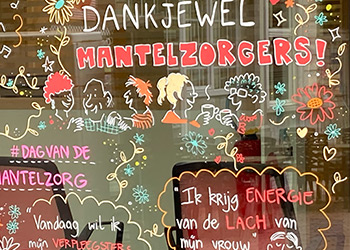 DANKJEWEL
MANTELZORGERS!
#DAGVANDE
MANTELZORG
"Vandaag wil ik
mijn VERPLEEGSTERS
"Ik krijg ENERGIE
van de LACH van
mijn vrouw"